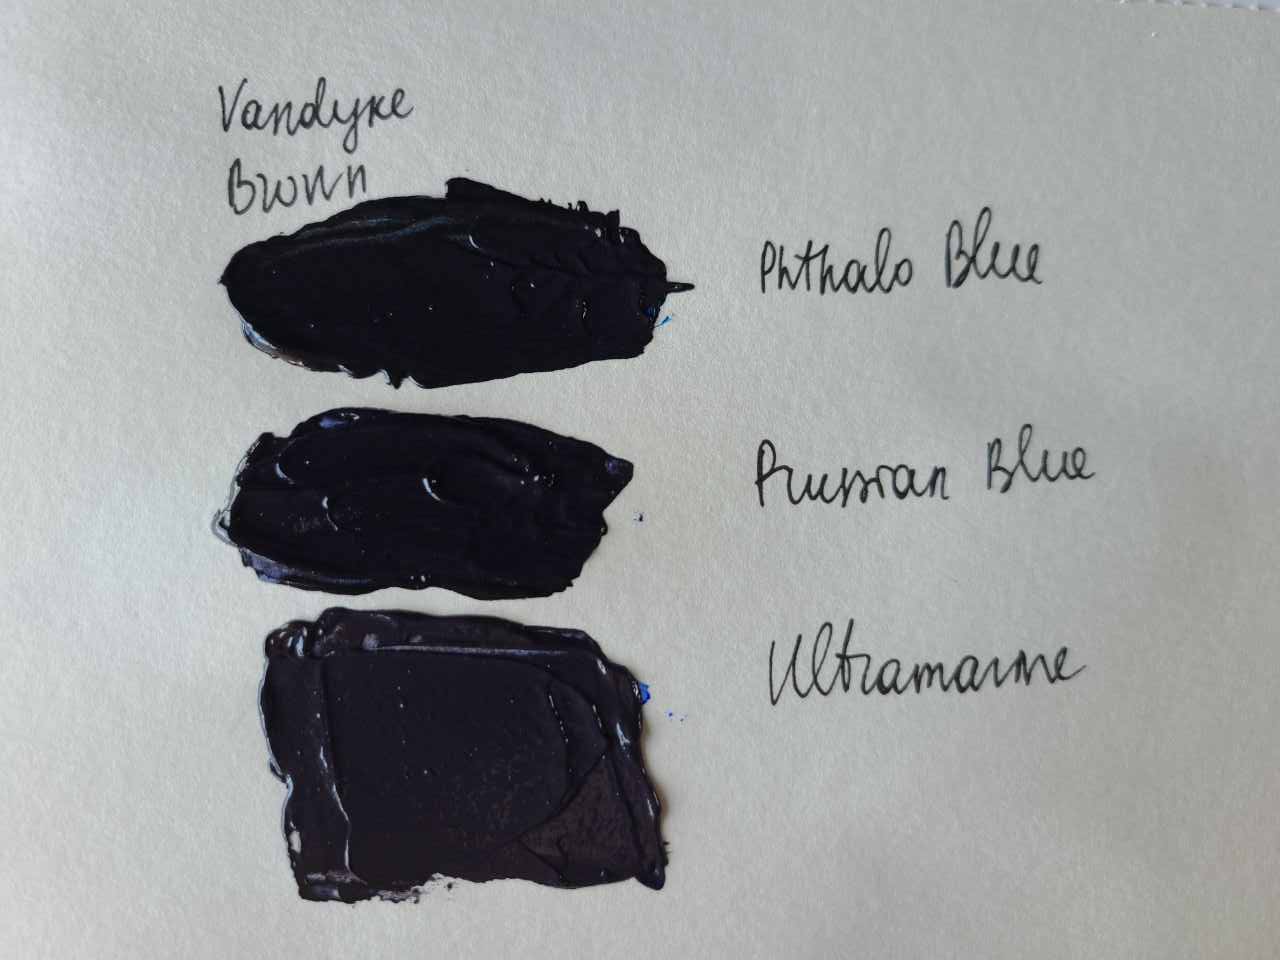 Vandyke
Brown
Phthalo Blue
Prussian Blue
Ultramarine